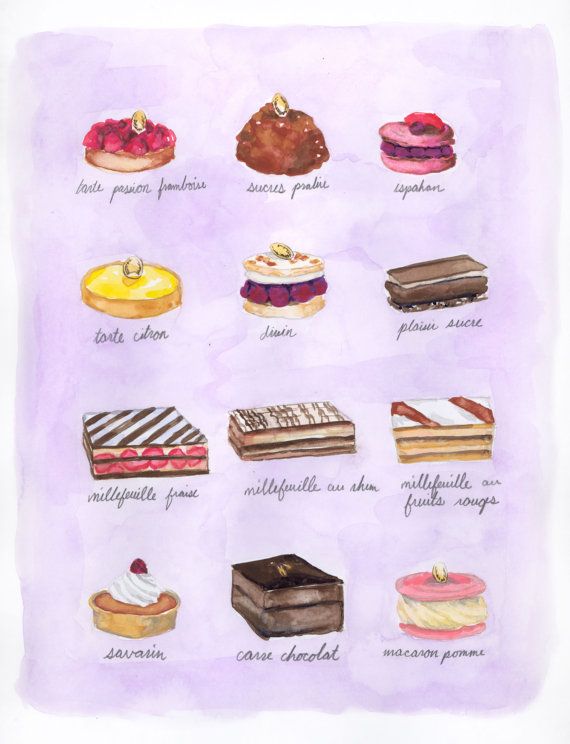 tarte passion framboise
sucres praline
ispahan
tarte citron
divin
plaisir sucre
millefeuille fraise
millefeuille au rhum
millefeuille au
fruits rouges
savarin
carre chocolat
macaron pomme